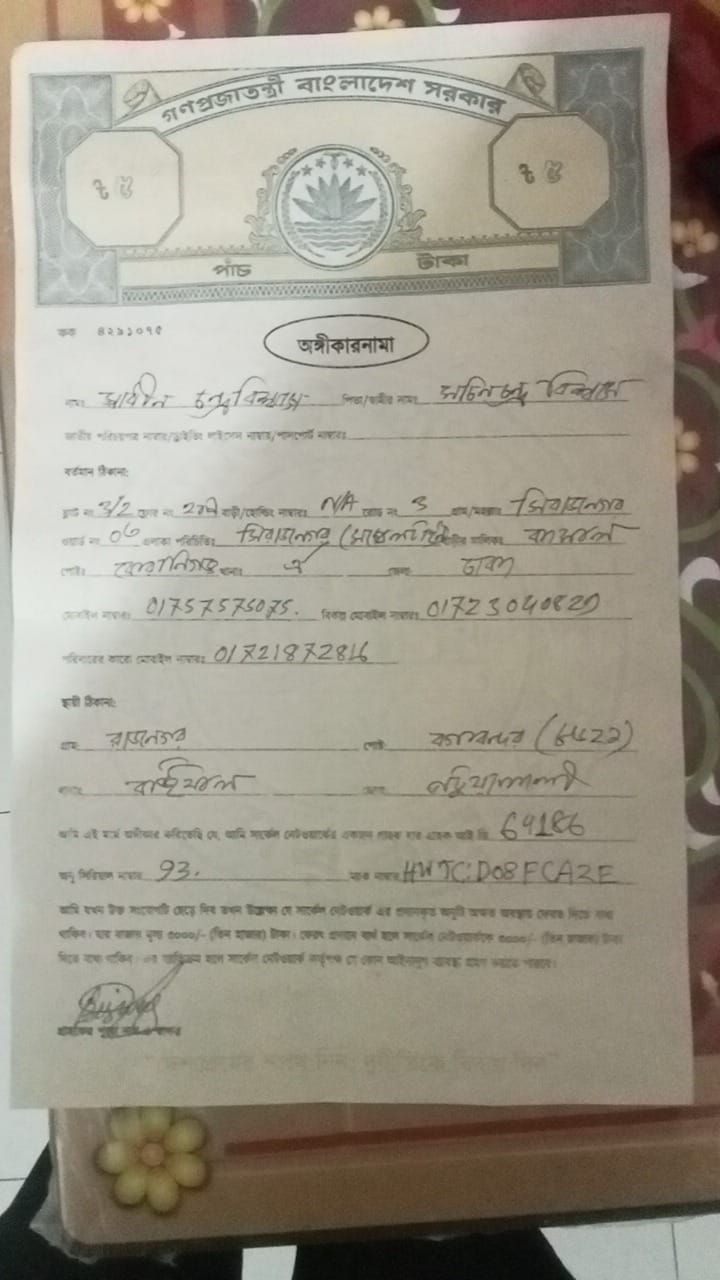 গণপ্রজাতন্ত্রী বাংলাদেশ সরকার
৳ ৫ ৳ ৫
পাঁচ টাকা
কক ৪২৯১০৭৫
অঙ্গীকারনামা
নামঃ চন্দ্র বিশ্বাস পিতা/স্বামীর নামঃ চন্দ্র বিশ্বাস
জাতীয় পরিচয়পত্র নাম্বার/ড্রাইভিং লাইসেন্স নাম্বার/পাসপোর্ট নাম্বারঃ
বর্তমান ঠিকানা:
ফ্ল্যাট নং 3/2 ফ্লোর নং বাড়ী/হোল্ডিং নাম্বারঃ N/A রোড নং 3 গ্রাম/মহল্লাঃ সিরাজনগর
ওয়ার্ড নং 06 এলাকা পরিচিতিঃ সিরাজনগর বাড়ীর মালিকঃ কামাল
পোষ্টঃ থানাঃ ঐ জেলাঃ ঢাকা
মোবাইল নাম্বারঃ 01757575075. বিকল্প মোবাইল নাম্বারঃ
পরিবারের কারো মোবাইল নাম্বারঃ 01721872816
স্থায়ী ঠিকানা:
গ্রামঃ রাজনগর পোষ্টঃ
থানাঃ জেলাঃ
আমি এই মর্মে অঙ্গীকার করিতেছি যে, আমি সার্কেল নেটওয়ার্কের একজন গ্রাহক যার গ্রাহক আই ডি 64186
অনু সিরিয়াল নাম্বার 93. ম্যাক নাম্বারঃ HWTC:D08FCA2E
আমি যখন উক্ত সংযোগটি ছেড়ে দিব তখন উল্লেখ্য যে সার্কেল নেটওয়ার্ক এর প্রদানকৃত অনুটি অক্ষত অবস্থায় ফেরত দিতে বাধ্য
থাকিব। যার বাজার মূল্য ৩০০০/- (তিন হাজার) টাকা। ফেরৎ প্রদানে ব্যর্থ হলে সার্কেল নেটওয়ার্ককে ৩০০০/- (তিন হাজার) টাকা
দিতে বাধ্য থাকিব। এর ব্যতিক্রম হলে সার্কেল নেটওয়ার্ক কর্তৃপক্ষ যে কোন আইনানুগ ব্যবস্থা গ্রহণ করতে পারবে।
গ্রাহকের পূর্ণ নাম ও স্বাক্ষর